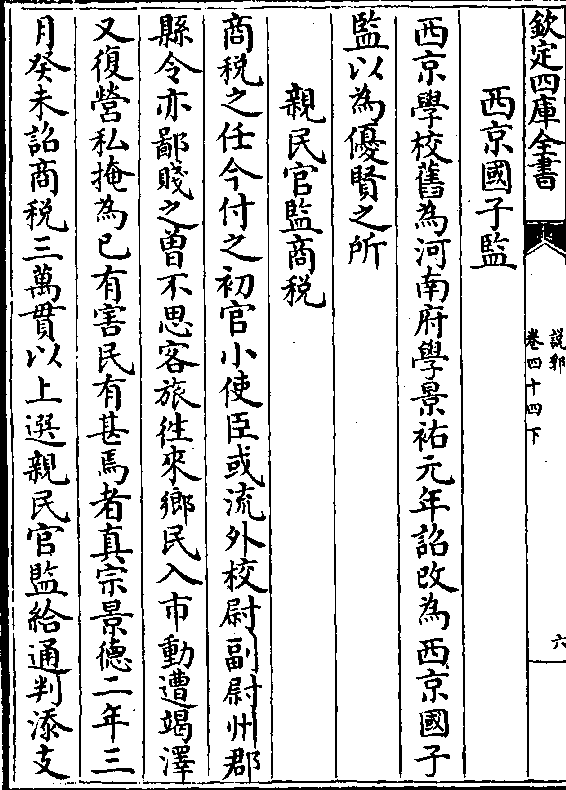 欽定四庫全書
說郛
卷四十四下
六
西京國子監
西京學校舊為河南府學景祐元年詔改為西京國子
監以為優賢之所
親民官監商税
商税之任今付之初官小使臣或流外校尉副尉州郡
縣令亦鄙賤之曽不思客旅徃來鄉民入市動遭竭澤
又復營私掩為已有害民有甚焉者真宗景德二年三
月癸未詔商税三萬貫以上選親民官監給通判添支